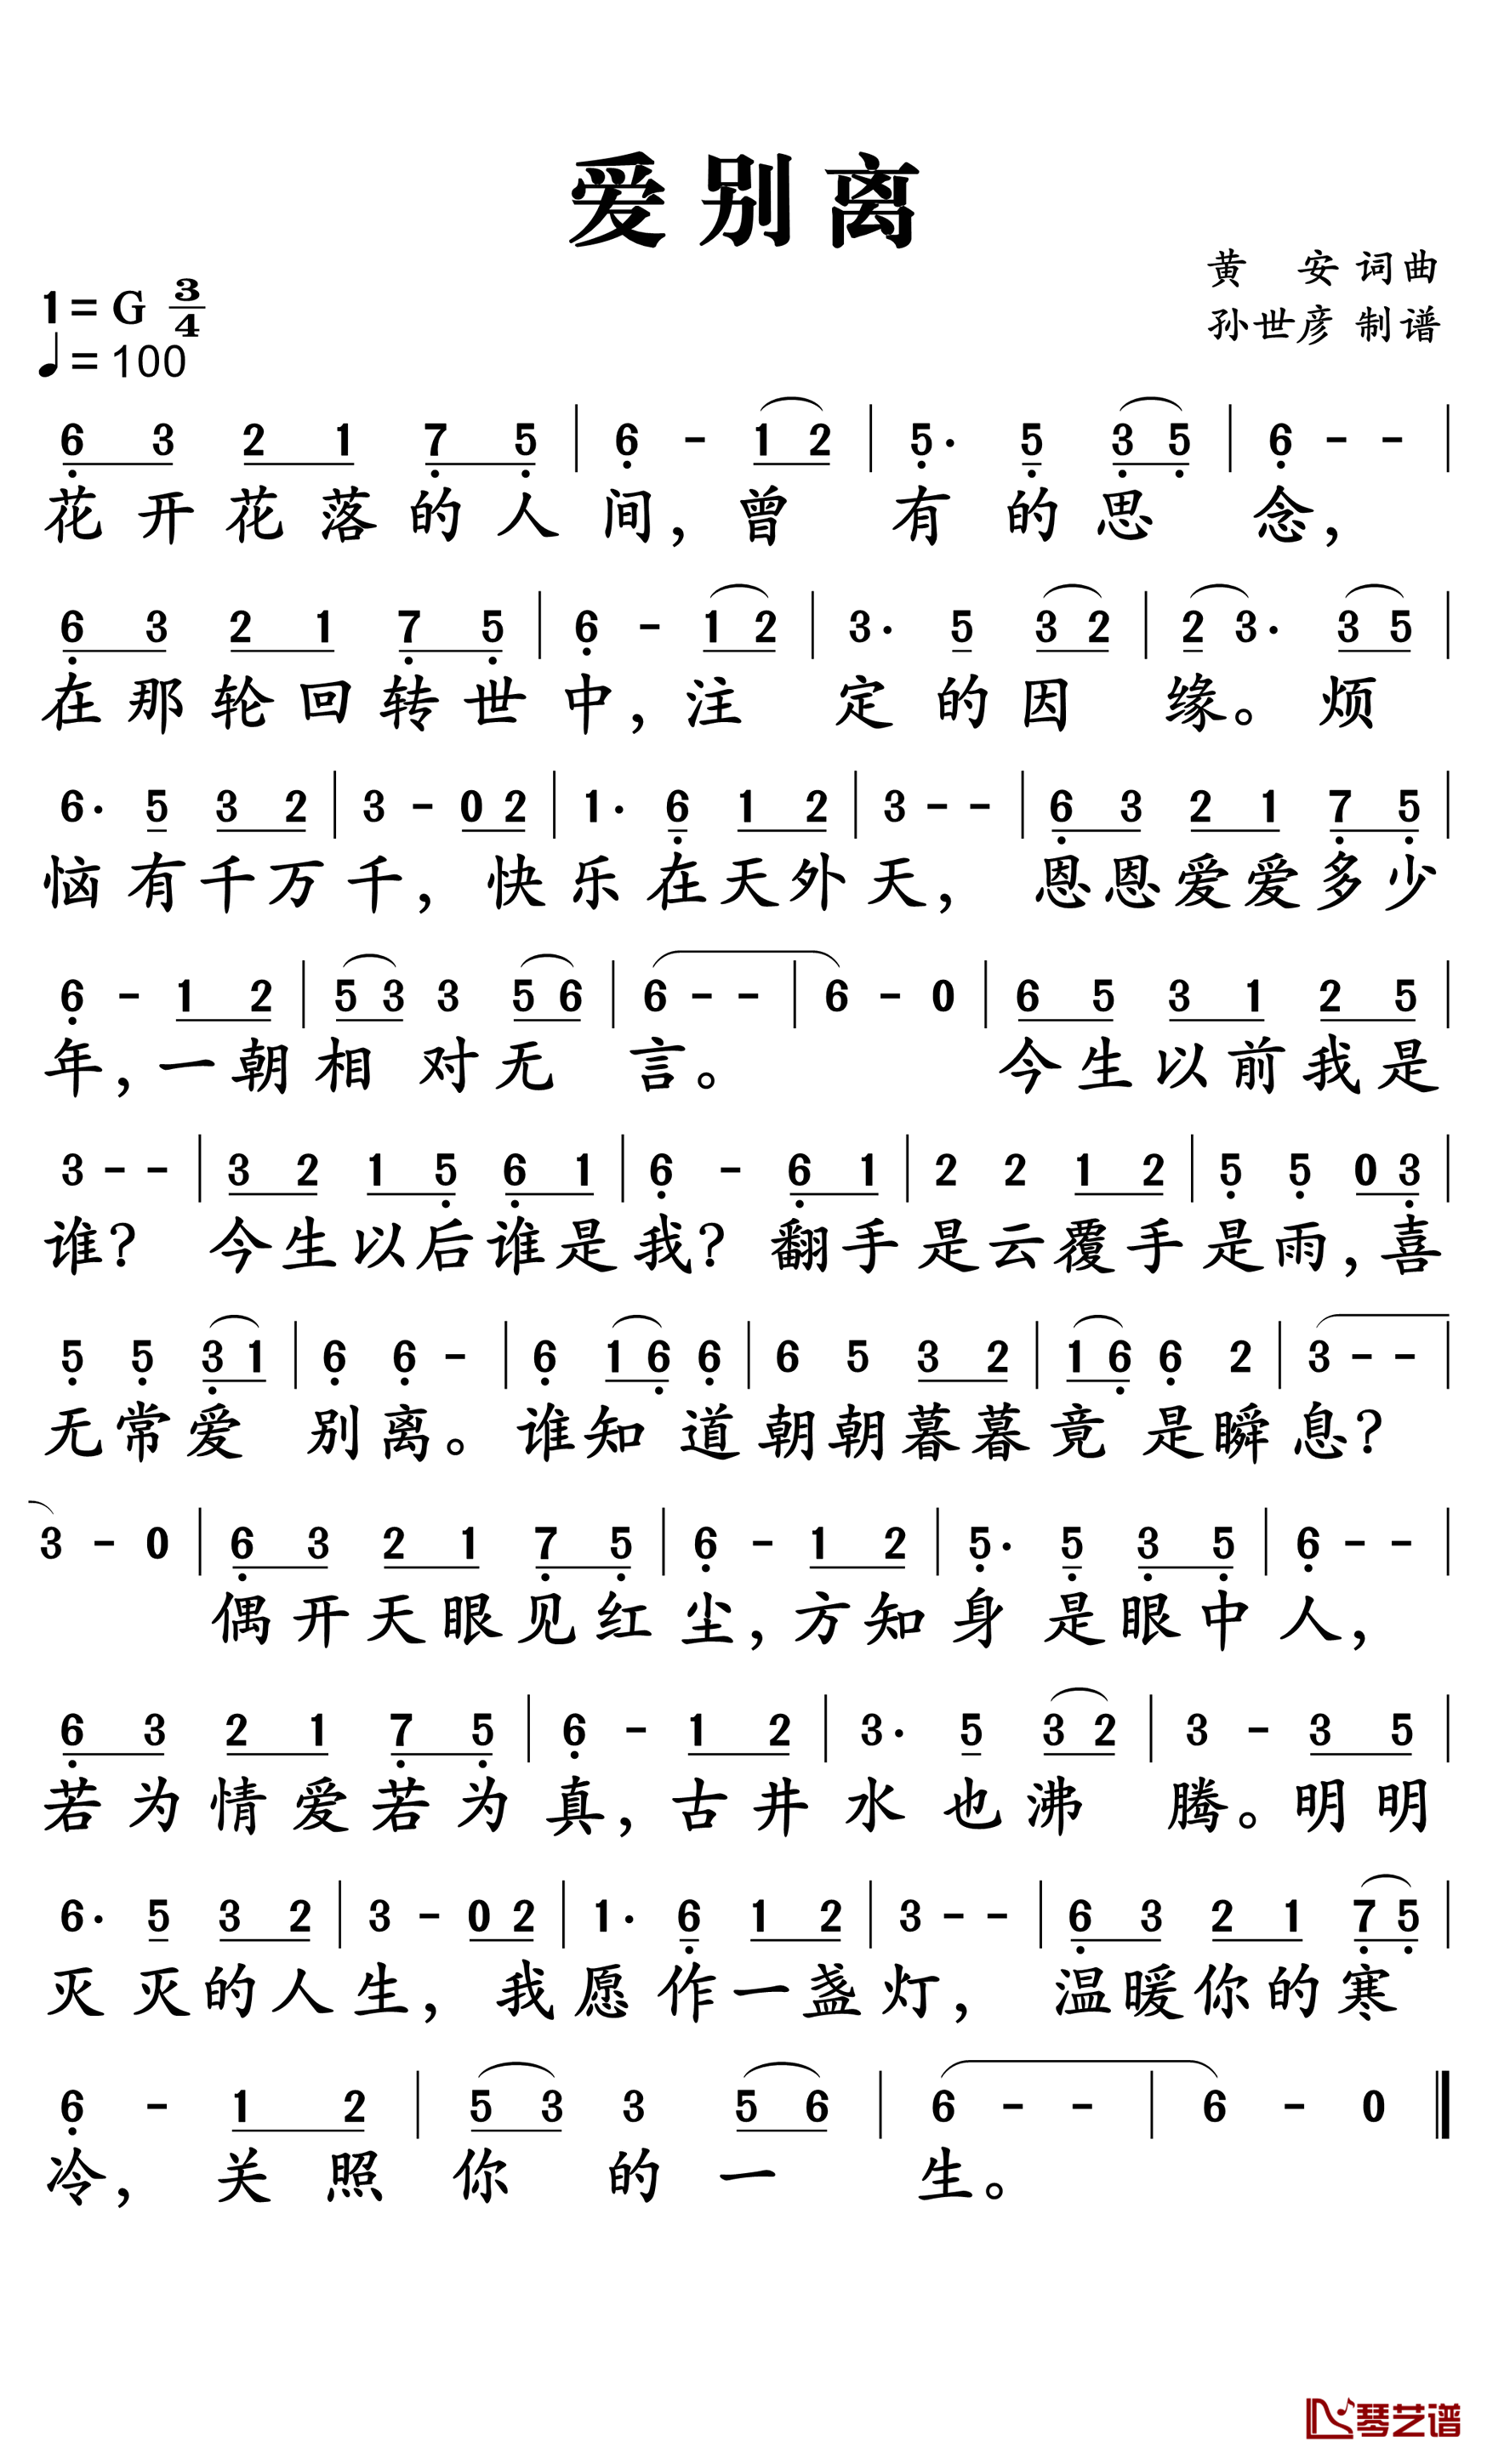 爱别离
黄 安 词曲
1=G 3/4
孙世彦 制谱
♩=100
6 3 2 1 7 5 | 6 - 1 2 | 5· 5 3 5 | 6 - - |
花开花落的人间，曾 有的思 念，
6 3 2 1 7 5 | 6 - 1 2 | 3· 5 3 2 | 2 3· 3 5 |
在那轮回转世中，注 定的因 缘。烦
6· 5 3 2 | 3 - 0 2 | 1· 6 1 2 | 3 - - | 6 3 2 1 7 5 |
恼有千万千，快乐在天外天，恩恩爱爱多少
6 - 1 2 | 5 3 3 5 6 | 6 - - | 6 - 0 | 6 5 3 1 2 5 |
年，一朝相 对无 言。 今生以前我是
3 - - | 3 2 1 5 6 1 | 6 - 6 1 | 2 2 1 2 | 5 5 0 3 |
谁？ 今生以后谁是我？翻手是云覆手是雨，喜
5 5 3 1 | 6 6 - | 6 1 6 6 | 6 5 3 2 | 1 6 6 2 | 3 - - |
无常爱 别离。谁知道朝朝暮暮竟是瞬息？
3 - 0 | 6 3 2 1 7 5 | 6 - 1 2 | 5· 5 3 5 | 6 - - |
偶开天眼见红尘，方知身 是眼中人，
6 3 2 1 7 5 | 6 - 1 2 | 3· 5 3 2 | 3 - 3 5 |
若为情爱若为真，古井水也沸 腾。明明
6· 5 3 2 | 3 - 0 2 | 1· 6 1 2 | 3 - - | 6 3 2 1 7 5 |
灭灭的人生，我愿作一盏灯，温暖你的寒
6 - 1 2 | 5 3 3 5 6 | 6 - - | 6 - 0 ‖
冷，关照你 的一 生。
琴艺谱